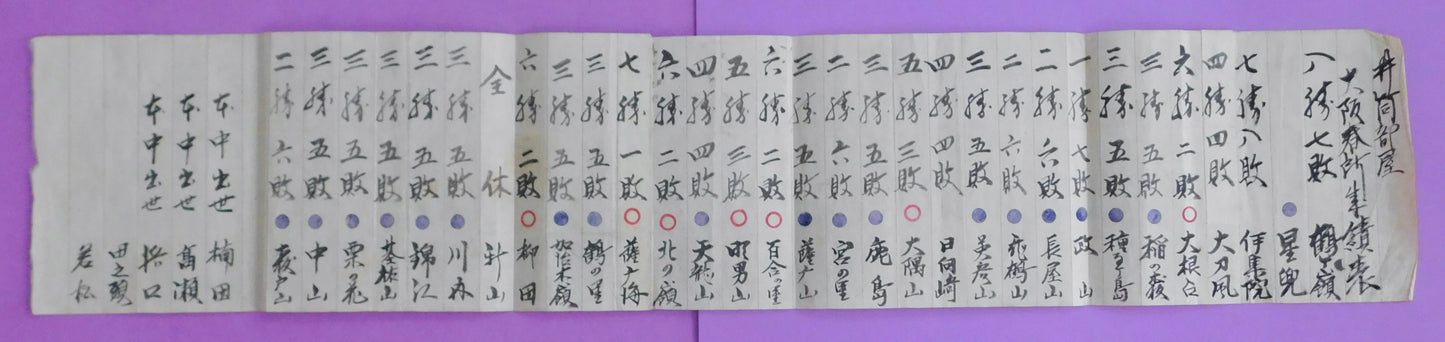 井筒部屋
大阪春所成績表
八勝七敗 鶴ヶ嶺
星兜
七勝八敗 伊集院
四勝四敗 大刀風
六勝二敗 大根占
三勝五敗 稲の義
三勝五敗 種子島
一勝七敗 政山
二勝六敗 長屋山
二勝六敗 飛鶴山
三勝五敗 吴彦山
四勝四敗 日向崎
五勝三敗 大隅山
三勝五敗 鹿島
二勝六敗 宮の里
三勝五敗 薩才山
六勝二敗 百合の里
五勝三敗 明男山
四勝四敗 天龍山
六勝二敗 北の嶺
七勝一敗 薩才海
三勝五敗 鶴の里
三勝五敗 加治木嶺
六勝二敗 柳田
全休 新山
三勝五敗 川森
三勝五敗 錦江
三勝五敗 山
三勝五敗 栗の花
三勝五敗 中山
二勝六敗 義戸山
本中出世 楠田
本中出世 高瀬
本中出世 松口
田之頭
若松